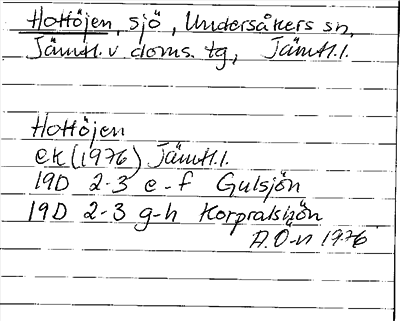 Hottöjen, sjö, Undersåkers sn,
Jämtl. v. doms. tg, Jämtl. l.
Hottöjen
ek (1976) Jämtl. l.
19D 2-3 e-f Gulsjön
19D 2-3 g-h Korpralshön
A.Ö-n 1976